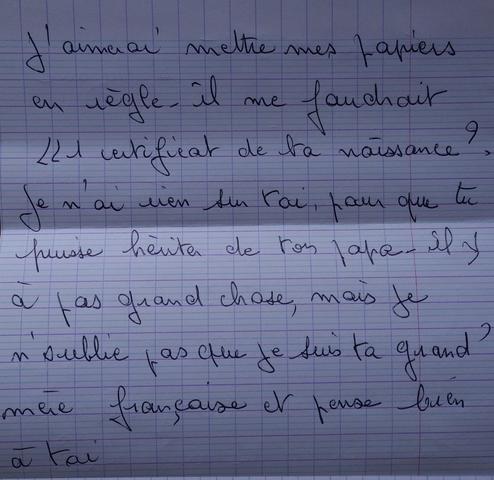 J'aimerai mettre mes papiers
en règle - il me faudrait
1 certificat de ta naissance,
Je n'ai rien sur toi, pour que tu
puisse hériter de ton papa - il y
à pas grand chose, mais je
n'oublie pas que je suis ta grand'
mère française et pense bien
à toi